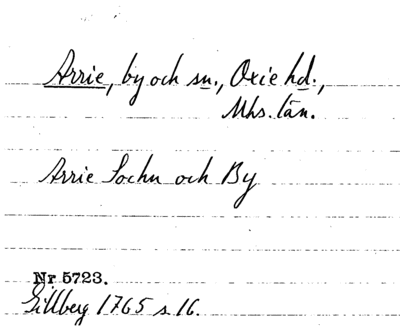 Arrie, by och sn., Oxie hd.,
Mhs. län.
Arrie Sochn och By
Nr 5723.
Gillberg 1765 s 16.